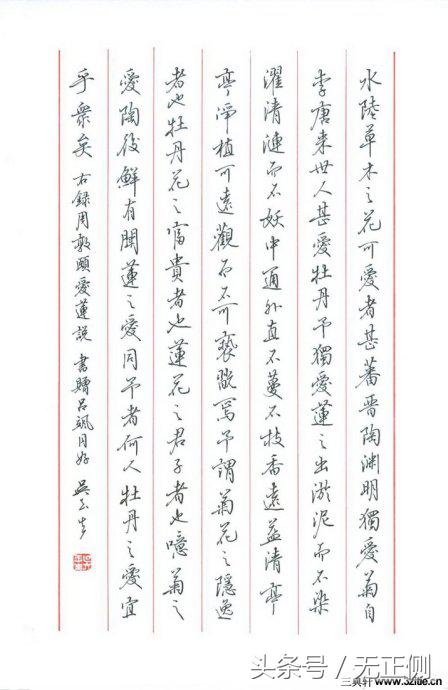 水陸草木之花可愛者甚蕃晋陶渊明獨愛菊自
李唐来世人甚愛牡丹予獨愛蓮之出淤泥而不染
濯清漣而不妖中通外直不蔓不枝香遠益清亭
亭淨植可遠觀而不可褻翫焉予謂菊花之隱逸
者也牡丹花之富貴者也蓮花之君子者也噫菊之
愛陶後鮮有聞蓮之愛同予者何人牡丹之愛宜
乎衆矣 右録周敦頤愛蓮説 書贈吕 同好 吴玉生
三典轩 www.32lde.cn
头条号/无正侧